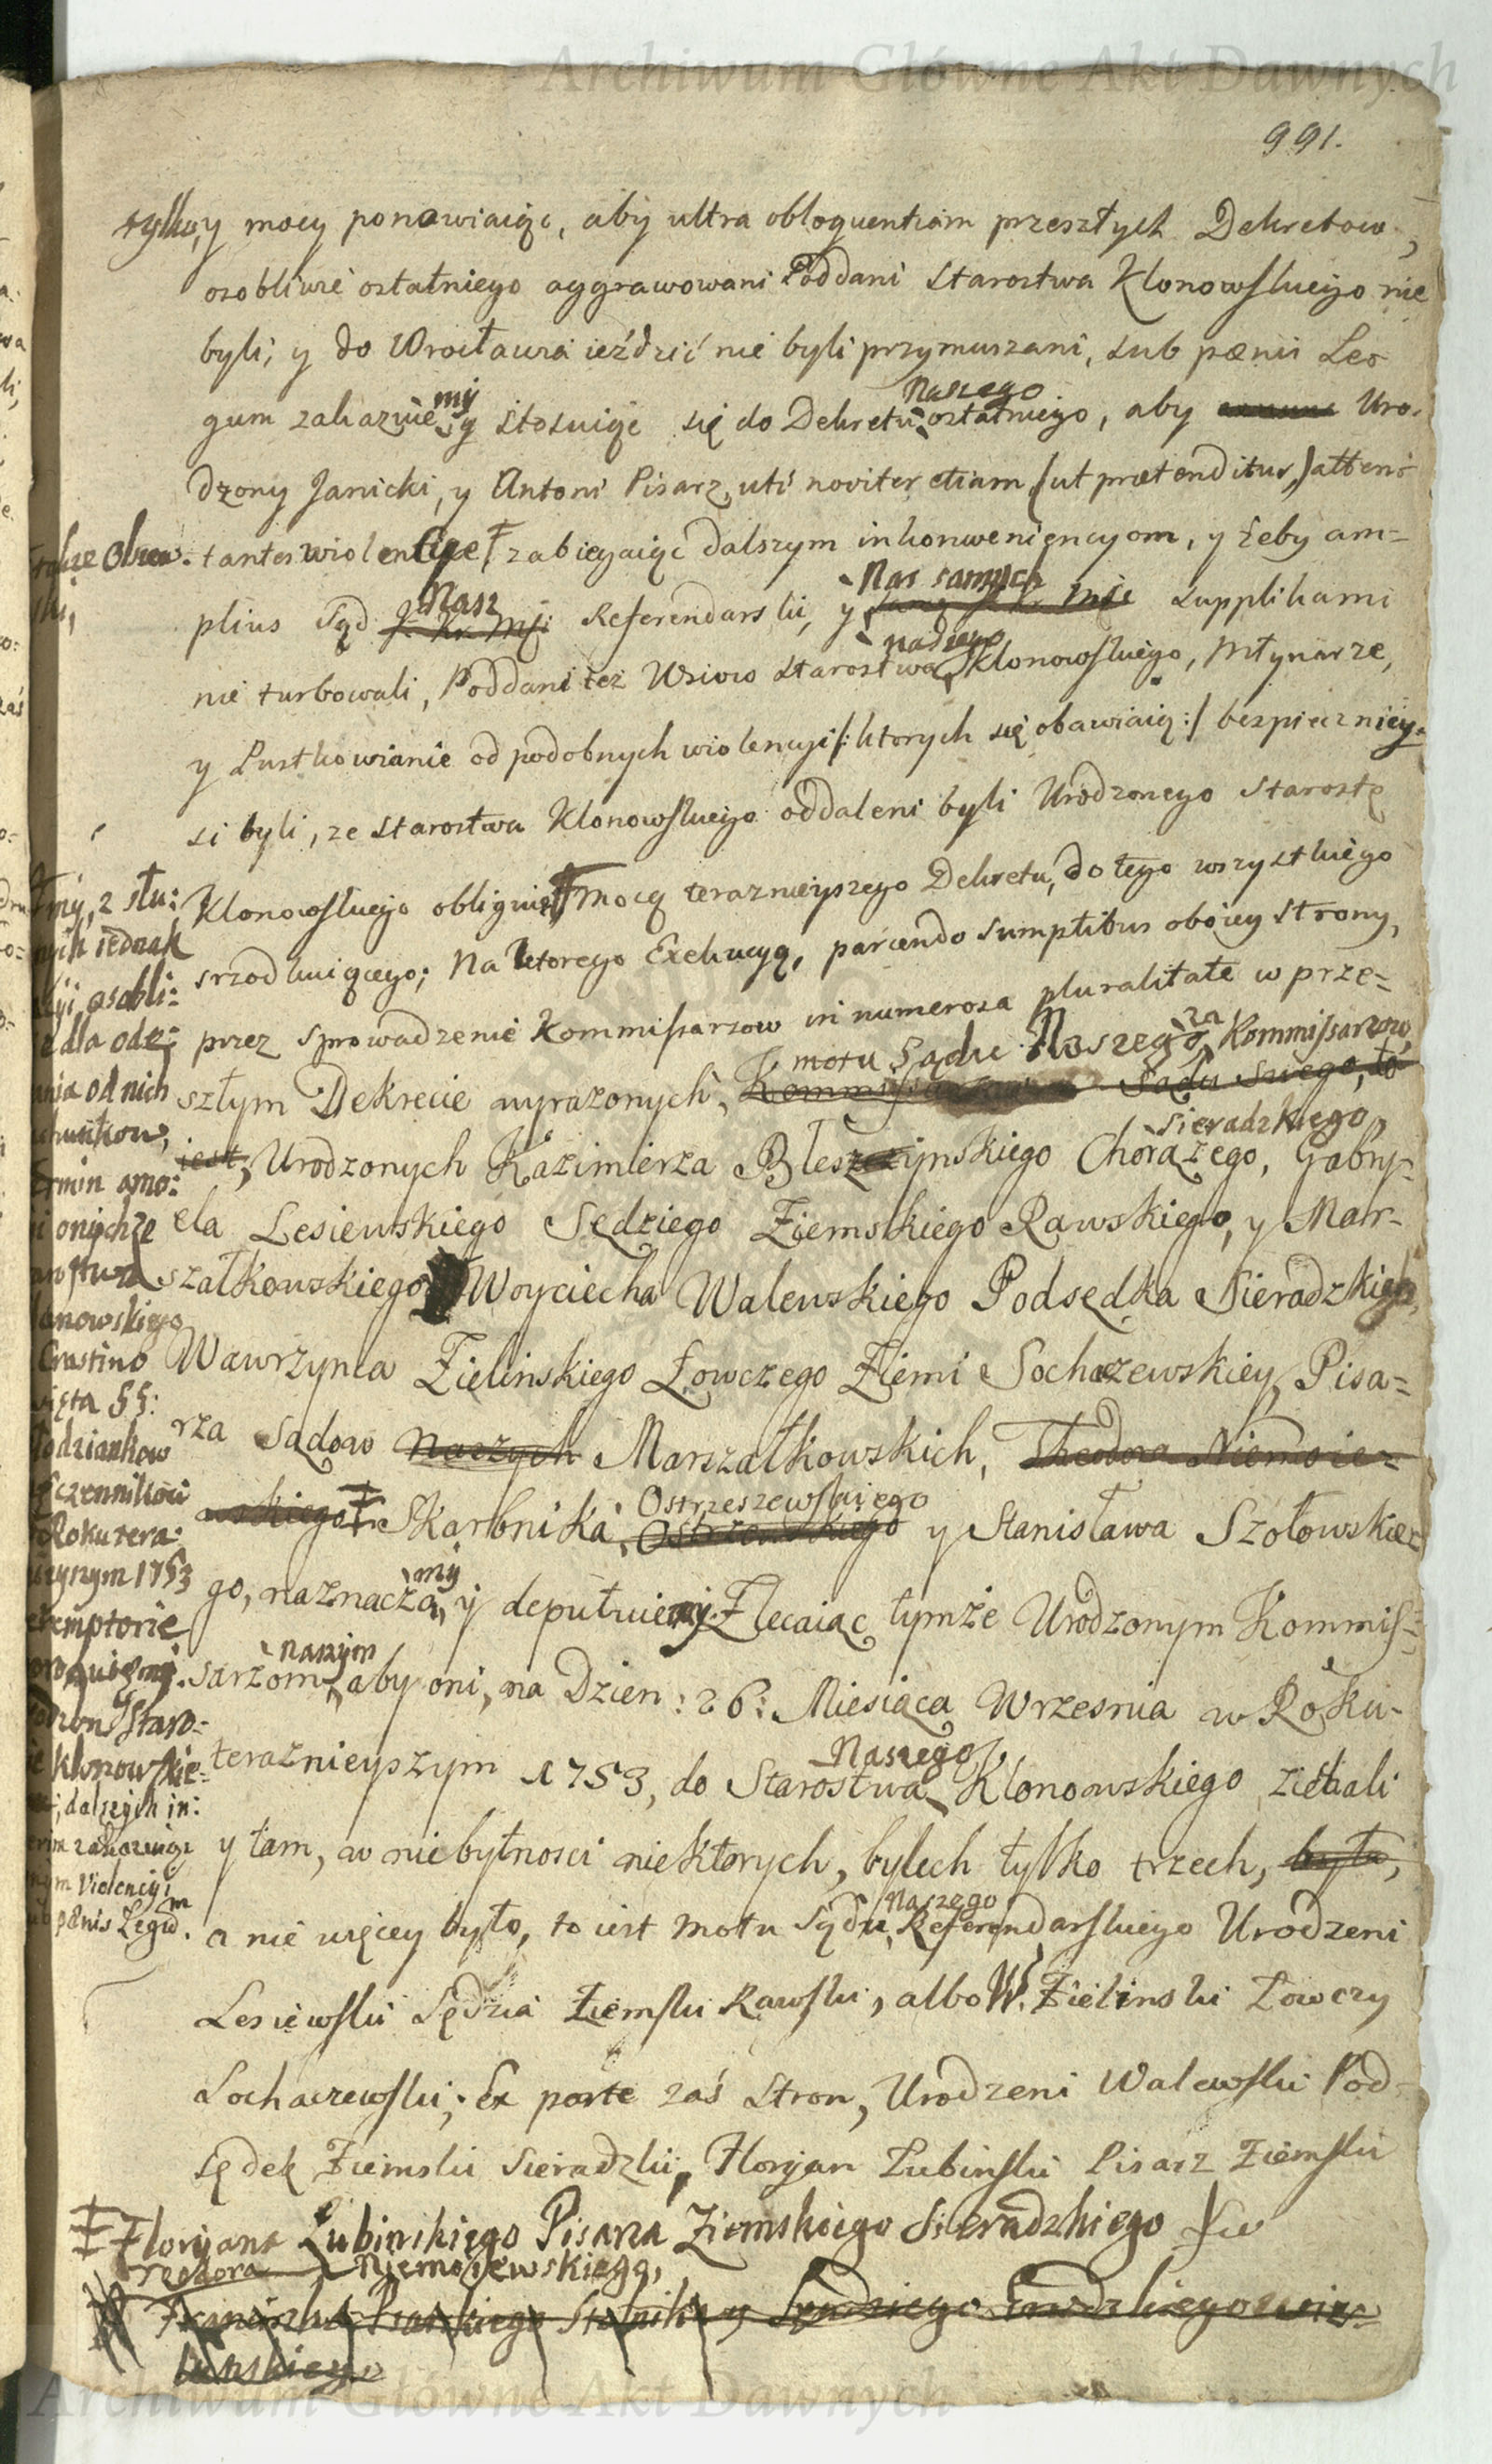 Archiwum Główne Akt Dawnych
991.
tylko, y mocy ponawiaiąc, aby ultra obloquentiam przeszłych Dekretow,
osobliwie ostatniego aggrawowani Poddani Starostwa Klonowskiego nie
byli; y do Wrocławia ieździć nie byli przymuszani, sub pœnis Le-
gum zakazuie my y stosuiąc się do Dekretu Naszego ostatniego, aby Uro-
dzony Janicki, y Antoni Pisarz, uti noviter etiam (ut prætenditur,) atten-
tantes wiolentias zabiegaiąc dalszym inkonweniencyom, y żeby am=
plius Sąd J. Kr. Mci Nasz Referendarski, y Nas samych supplikami
nie turbowali, Poddani też Wsiow Starostwa naszego Klonowskiego, Młynarze,
y Pustkowianie od podobnych wiolencyi /: ktorych się obawiaią :/ bezpieczniey=
si byli, ze Starostwa Klonowskiego oddaleni byli Urodzonego Starostę
Klonowskiego obliguie mocą teraznieyszego Dekretu, do tego wszystkiego
srzodkuiącego; Na ktorego Exekucyą, parcendo sumptibus oboiey strony,
przez sprowadzenie Kommissarzow in numerosa pluralitate w prze=
szłym Dekrecie wyrazonych, motu Sądu Naszego za Kommissarzow,
Sądu swego, to
iest, Urodzonych Kazimierza Bleszynskiego Chorążego, Sieradzkiego, Gabry-
ela Lesiewskiego Sędziego Ziemskiego Rawskiego, y Mar-
szałkowskiego Woyciecha Walewskiego Podsędka Sieradzkiego,
Wawrzynca Zielinskiego Łowczego Ziemi Sochaczewskiey, Pisa=
rza Sądow Naszych Marszałkowskich, Theodora Niemoie=
wskiego Skarbnika, Ostrzeszewskiego y Stanisława Szołowskie=
go, naznacza my, y deputuiemy. Zlecaiąc tymże Urodzonym Kommis=
sarzom naszym, aby oni, na Dzien : 26 : Miesiąca Wrzesnia w Roku
teraznieyszym 1753, do Starostwa Naszego Klonowskiego ziechali
y tam, w niebytnosci niektorych, bylech tylko trzech, było,
a nie więcey było, to iest motu Sądu Naszego Referendarskiego Urodzeni
Lesiewski Sędzia Ziemski Rawski, albo W. Zielinski Łowczy
Sochaczewski; Ex parte zaś Stron, Urodzeni Walewski Pod-
sędek Ziemski Sieradzki, Floryan Łubinski Pisarz Ziemski
Floryana Łubinskiego Pisarza Ziemskiego Sieradzkiego
Teodora Niemojewskiego,
Stolnika y Sędziego Grodzkiego Wie-
lunskiego
my, z słu:
nych iednak
osobli:
dla ode:
nia od nich
Termin
onychże
Starostwa
Klonowskiego
Crastino
Święta SS:
Młodziankow
Męczennikow
Roku tera:
znieyszym 1753
peremptorie
Staro:
Klonowskie:
dalszych in:
Violencyi
sub pœnis Legum.
Archiwum Główne Akt Dawnych